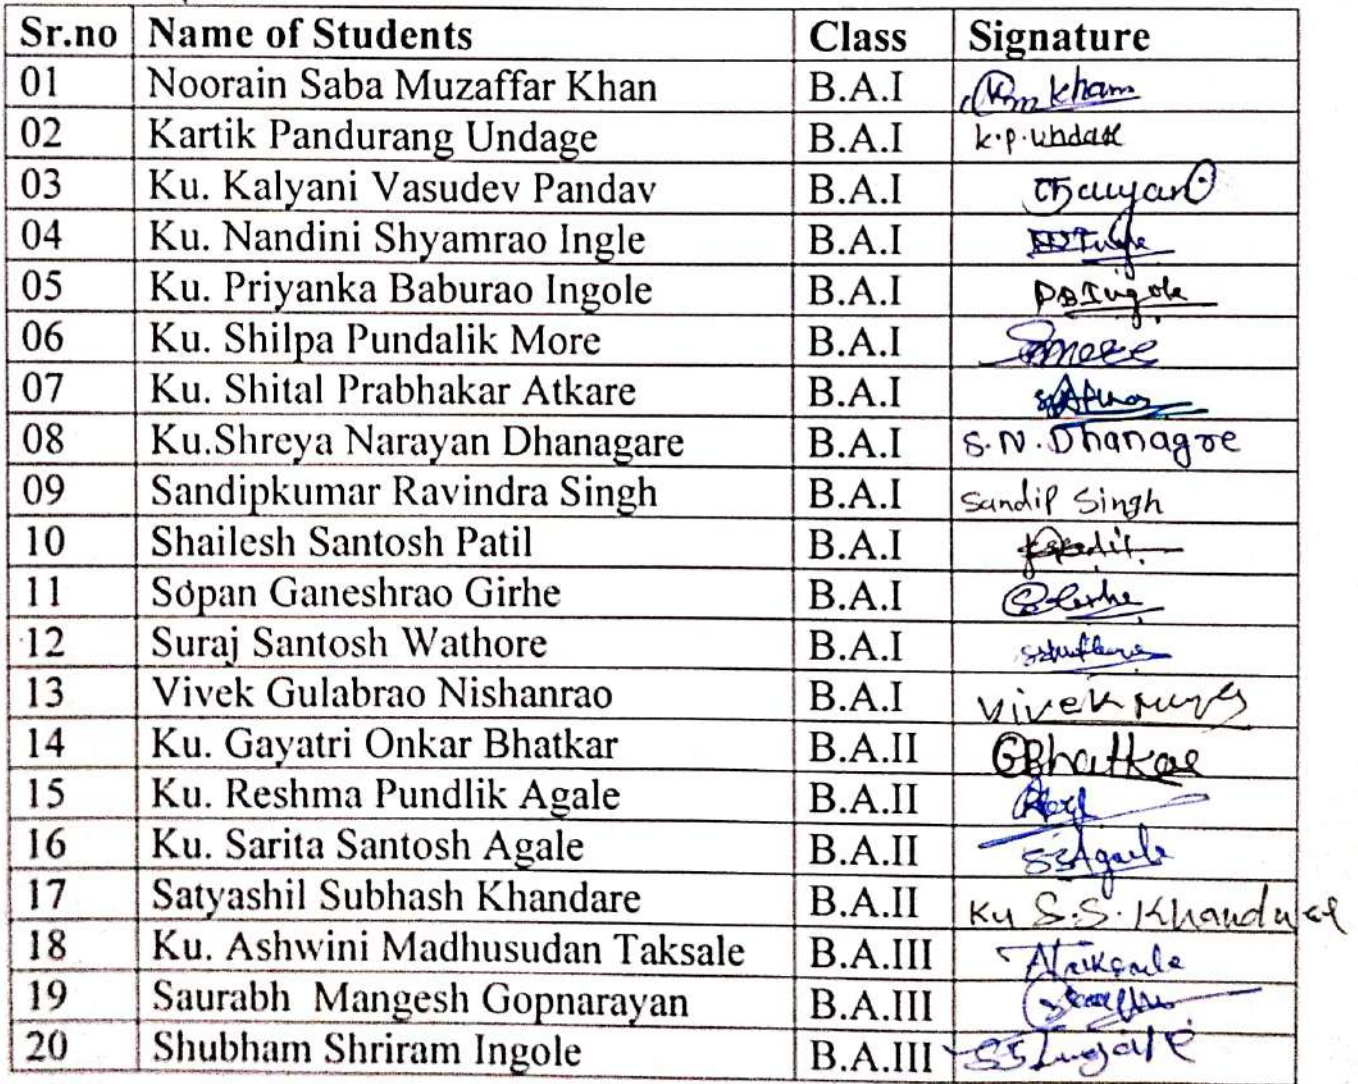 Sr.no Name of Students Class Signature
01 Noorain Saba Muzaffar Khan B.A.I khan
02 Kartik Pandurang Undage B.A.I k.p.undage
03 Ku. Kalyani Vasudev Pandav B.A.I
04 Ku. Nandini Shyamrao Ingle B.A.I
05 Ku. Priyanka Baburao Ingole B.A.I PBIngole
06 Ku. Shilpa Pundalik More B.A.I Smore
07 Ku. Shital Prabhakar Atkare B.A.I
08 Ku.Shreya Narayan Dhanagare B.A.I S.N.Dhanagre
09 Sandipkumar Ravindra Singh B.A.I Sandip Singh
10 Shailesh Santosh Patil B.A.I
11 Sopan Ganeshrao Girhe B.A.I
12 Suraj Santosh Wathore B.A.I
13 Vivek Gulabrao Nishanrao B.A.I Vivek
14 Ku. Gayatri Onkar Bhatkar B.A.II GBhatkar
15 Ku. Reshma Pundlik Agale B.A.II
16 Ku. Sarita Santosh Agale B.A.II SSAgale
17 Satyashil Subhash Khandare B.A.II Ku S.S. Khandare
18 Ku. Ashwini Madhusudan Taksale B.A.III
19 Saurabh Mangesh Gopnarayan B.A.III
20 Shubham Shriram Ingole B.A.III SSIngole